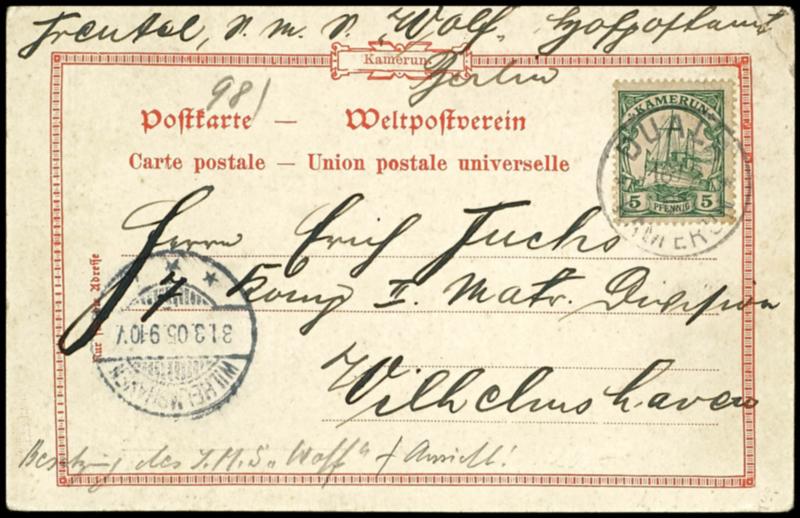 Trentel, S. M. S. "Wolf" Hofpostamt
Berlin
Kamerun
981
Postkarte — Weltpostverein
Carte postale — Union postale universelle
KAMERUN
5 PFENNIG 5
DUALA
KAMERUN
Herrn Erich Fuchs
7 Komp II. Matr. Division
Wilhelmshaven
Nur für die Adresse
31.3.05.9-10V.
WILHELMSHAVEN
Besatzung des S.M.S. "Wolf" + Ansicht!